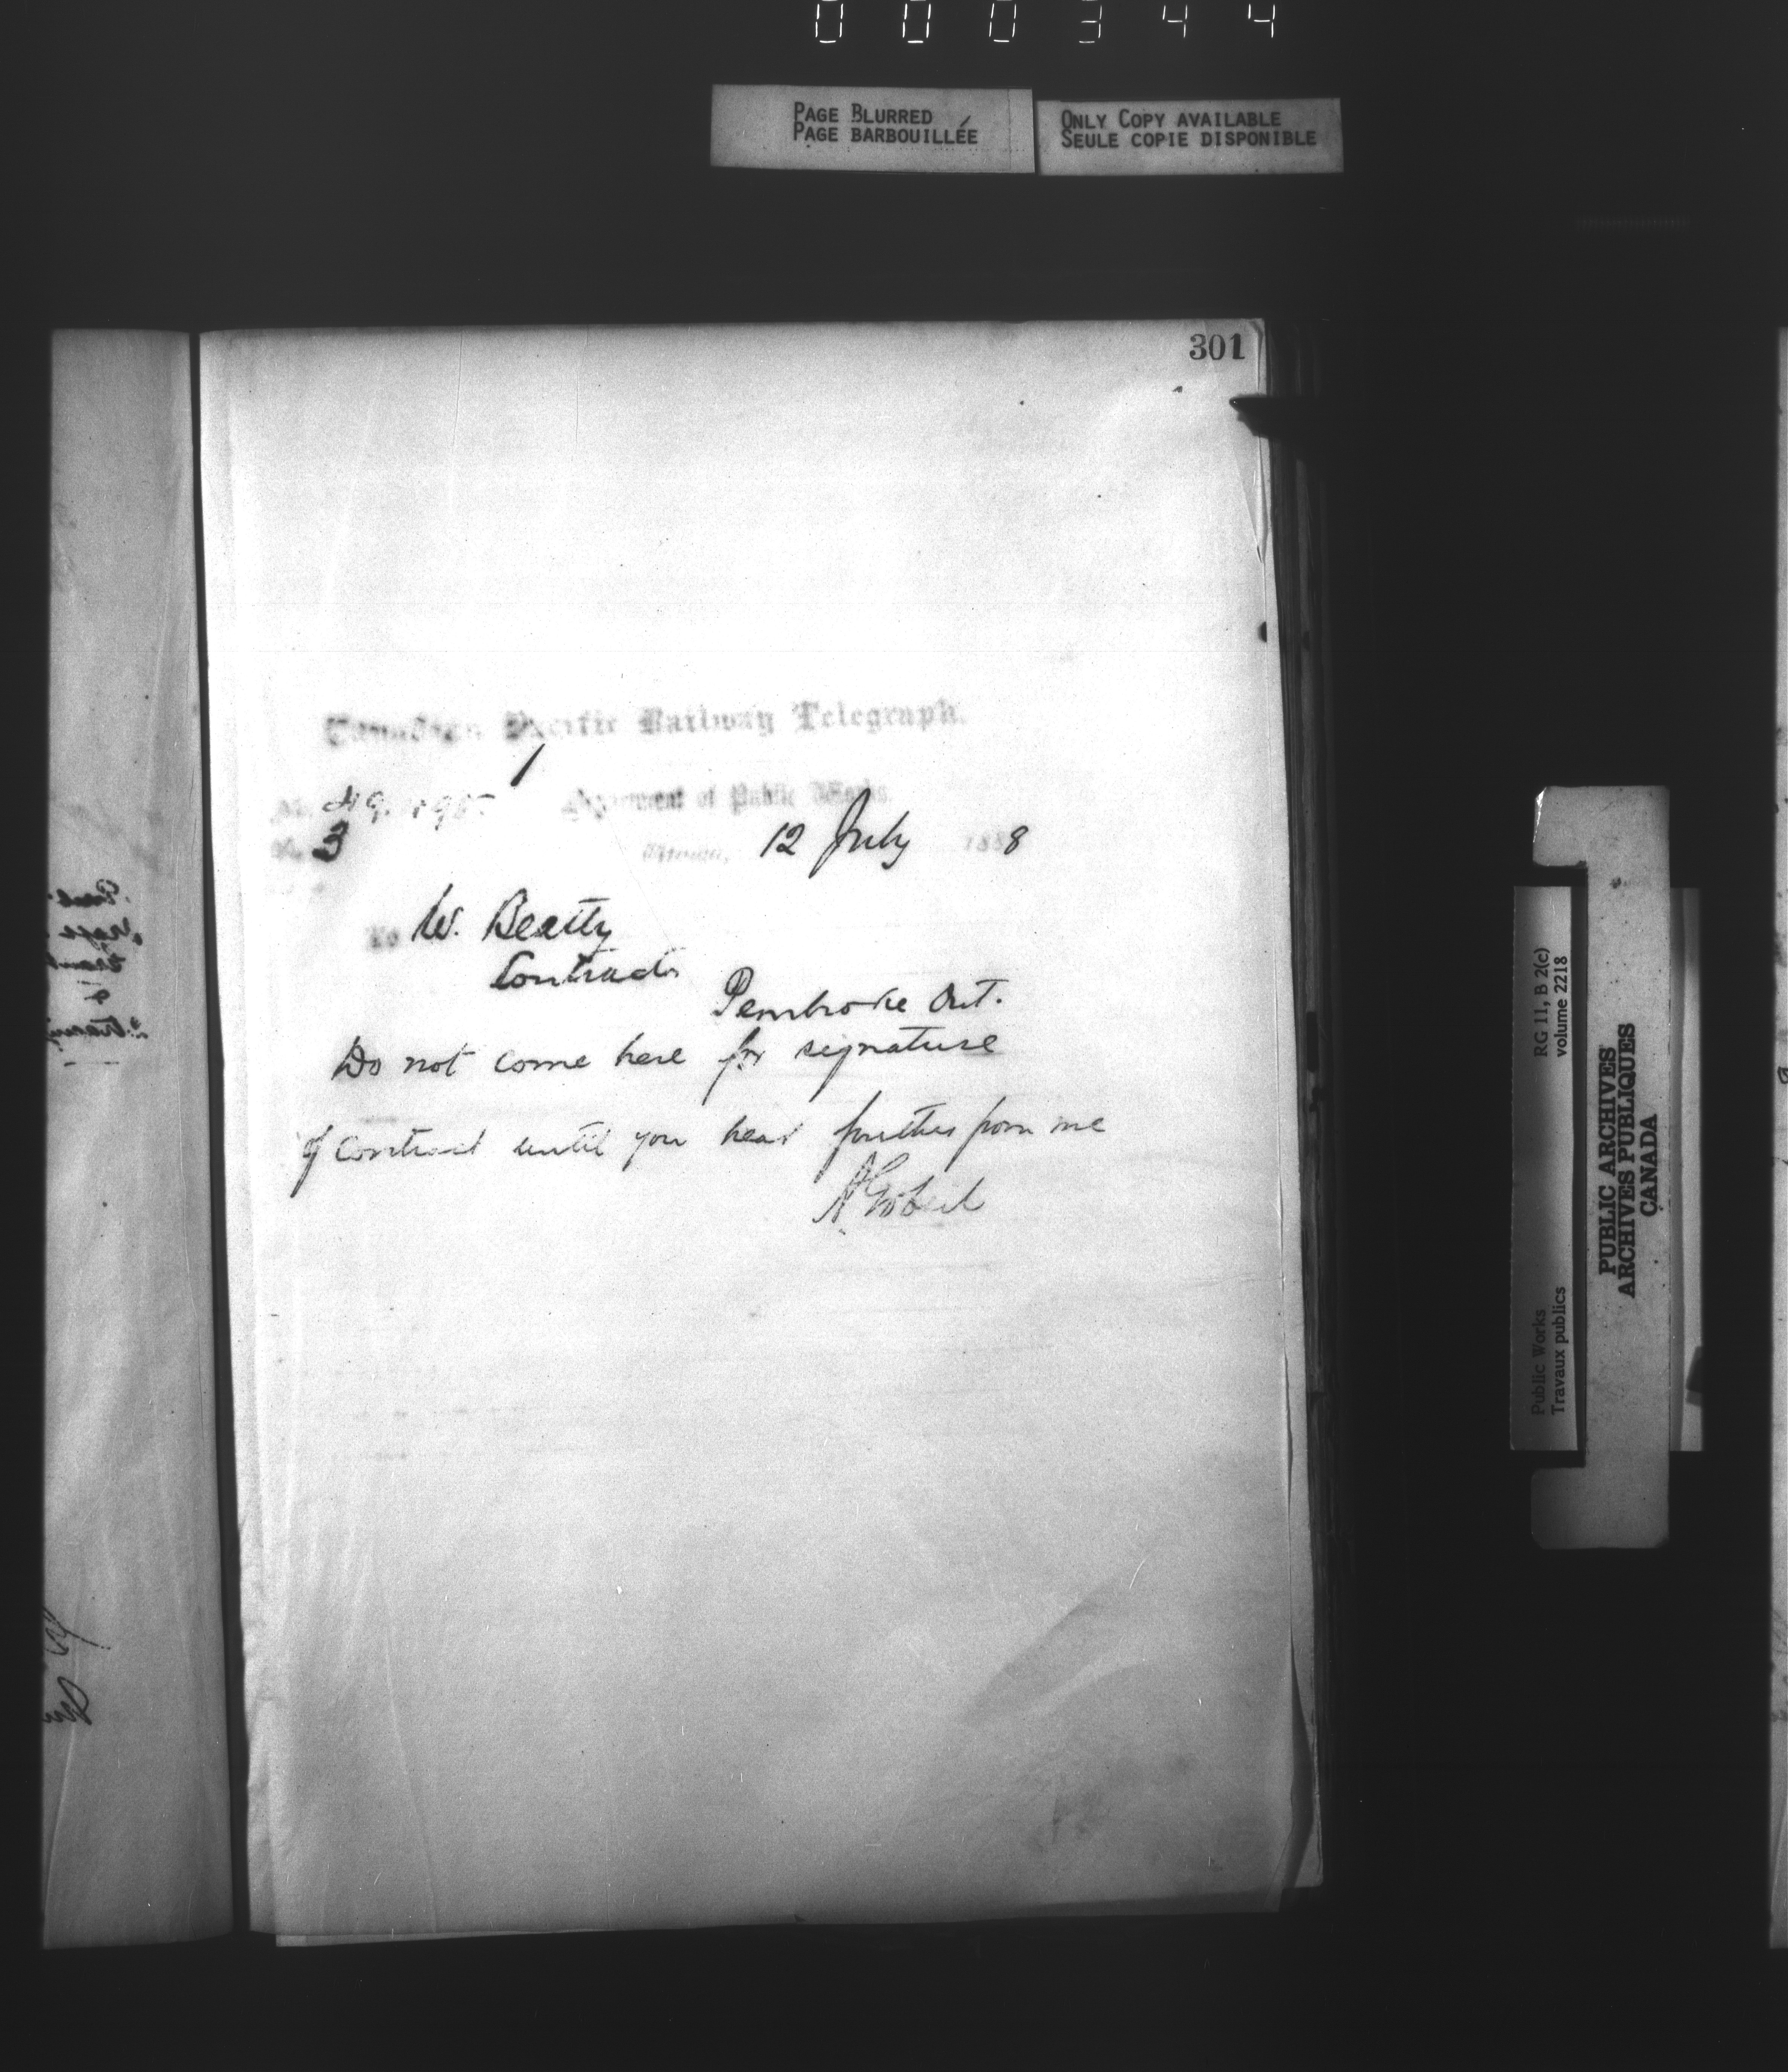 000344
PAGE BLURRED
PAGE BARBOUILLÉE
ONLY COPY AVAILABLE
SEULE COPIE DISPONIBLE
301
Canadian Pacific Railway Telegraph.
1
Department of Public Works
3
Ottawa, 12 July 1888
To W. Beatty
Contractor
Pembroke Ont.
Do not come here for signature
of contract until you hear further from me
A Gobeil
RG 11, B 2(c)
volume 2218
Public Works
Travaux publics
PUBLIC ARCHIVES
ARCHIVES PUBLIQUES
CANADA